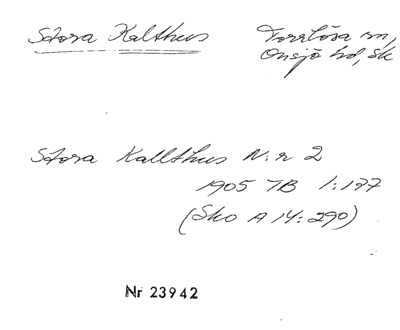 Stora Kalthus
Torrlösa sn,
Onsjö hd, Sk
Stora Kallthus N:r 2
1905 TB 1:177
(Sko A 14:290)
Nr 23942